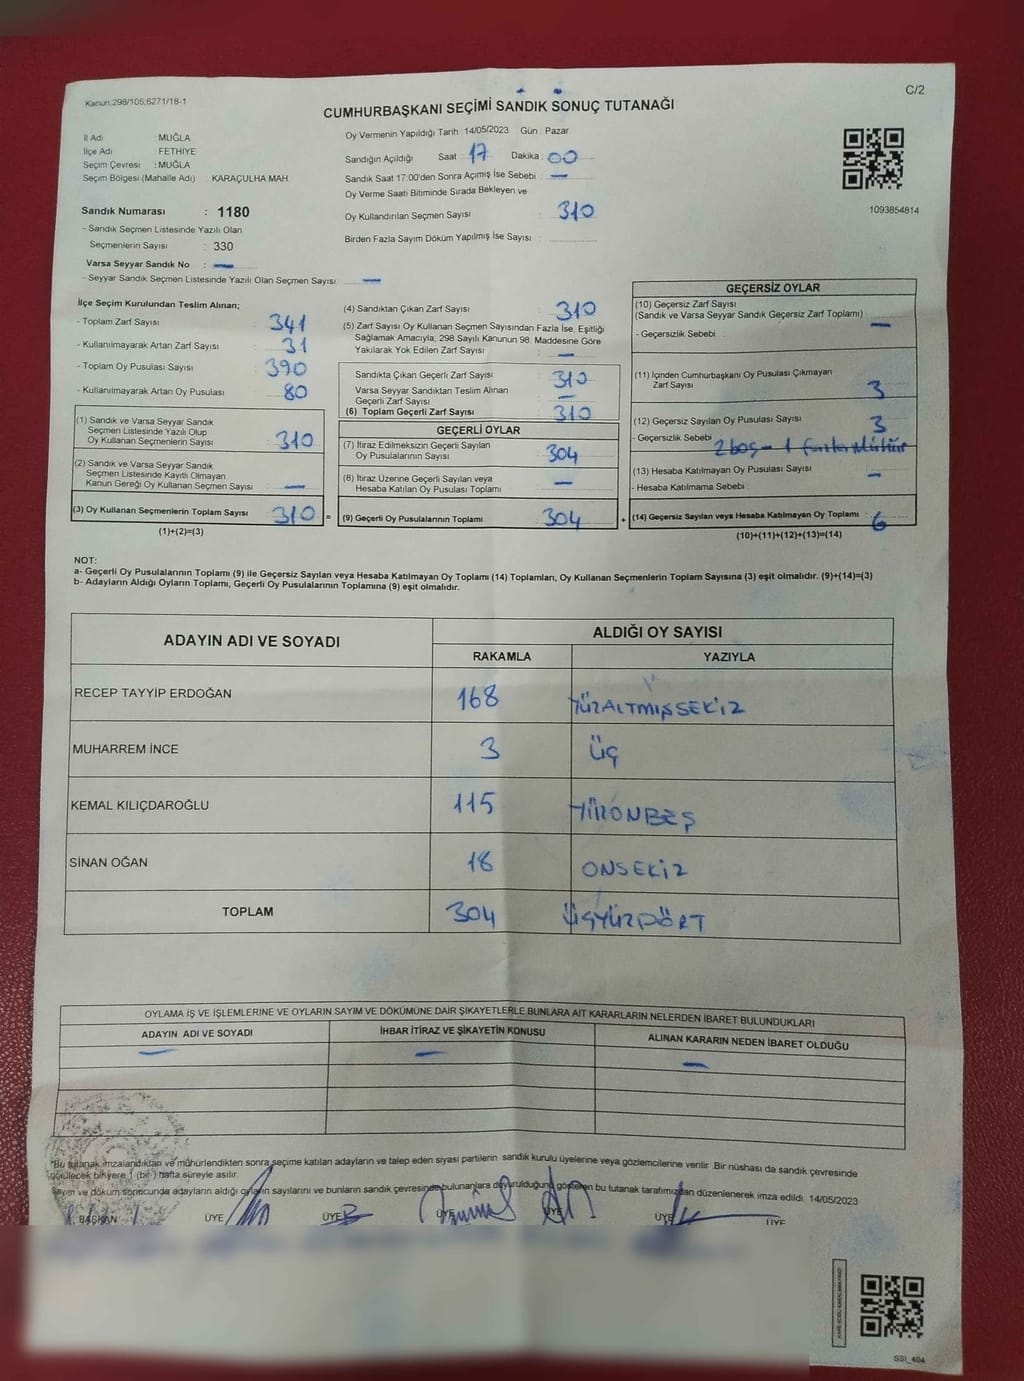 Kanun:298/105;6271/18-1
C/2
CUMHURBAŞKANI SEÇİMİ SANDIK SONUÇ TUTANAĞI
İl Adı MUĞLA
İlçe Adı FETHİYE
Seçim Çevresi : MUĞLA
Seçim Bölgesi (Mahalle Adı) : KARAÇULHA MAH.
Sandık Numarası : 1180
- Sandık Seçmen Listesinde Yazılı Olan
Seçmenlerin Sayısı : 330
Varsa Seyyar Sandık No : —
- Seyyar Sandık Seçmen Listesinde Yazılı Olan Seçmen Sayısı —
Oy Vermenin Yapıldığı Tarih 14/05/2023 Gün : Pazar
Sandığın Açıldığı Saat : 17 Dakika : 00
Sandık Saat 17:00'den Sonra Açımış İse Sebebi : —
Oy Verme Saati Bitiminde Sırada Bekleyen ve
Oy Kullandırılan Seçmen Sayısı : 310
Birden Fazla Sayım Döküm Yapılmış İse Sayısı :
1093854814
İlçe Seçim Kurulundan Teslim Alınan;
- Toplam Zarf Sayısı : 341
- Kullanılmayarak Artan Zarf Sayısı : 31
- Toplam Oy Pusulası Sayısı : 390
- Kullanılmayarak Artan Oy Pusulası : 80
(1) Sandık ve Varsa Seyyar Sandık
Seçmen Listesinde Yazılı Olup
Oy Kullanan Seçmenlerin Sayısı : 310
(2) Sandık ve Varsa Seyyar Sandık
Seçmen Listesinde Kayıtlı Olmayan
Kanun Gereği Oy Kullanan Seçmen Sayısı : —
(3) Oy Kullanan Seçmenlerin Toplam Sayısı : 310 =
(1)+(2)=(3)
(4) Sandıktan Çıkan Zarf Sayısı : 310
(5) Zarf Sayısı Oy Kullanan Seçmen Sayısından Fazla İse, Eşitliği
Sağlamak Amacıyla; 298 Sayılı Kanunun 98. Maddesine Göre
Yakılarak Yok Edilen Zarf Sayısı : —
Sandıkta Çıkan Geçerli Zarf Sayısı : 310
Varsa Seyyar Sandıktan Teslim Alınan
Geçerli Zarf Sayısı : —
(6) Toplam Geçerli Zarf Sayısı : 310
GEÇERLİ OYLAR
(7) İtiraz Edilmeksizin Geçerli Sayılan
Oy Pusulalarının Sayısı : 304
(8) İtiraz Üzerine Geçerli Sayılan veya
Hesaba Katılan Oy Pusulası Toplamı : —
(9) Geçerli Oy Pusulalarının Toplamı : 304 +
GEÇERSİZ OYLAR
(10) Geçersiz Zarf Sayısı
(Sandık ve Varsa Seyyar Sandık Geçersiz Zarf Toplamı) : —
- Geçersizlik Sebebi :
(11) İçinden Cumhurbaşkanı Oy Pusulası Çıkmayan
Zarf Sayısı : 3
(12) Geçersiz Sayılan Oy Pusulası Sayısı : 3
- Geçersizlik Sebebi : 2 boş - 1 fazla Mühür
(13) Hesaba Katılmayan Oy Pusulası Sayısı : —
- Hesaba Katılmama Sebebi :
(14) Geçersiz Sayılan veya Hesaba Katılmayan Oy Toplamı : 6
(10)+(11)+(12)+(13)=(14)
NOT:
a- Geçerli Oy Pusulalarının Toplamı (9) ile Geçersiz Sayılan veya Hesaba Katılmayan Oy Toplamı (14) Toplamları, Oy Kullanan Seçmenlerin Toplam Sayısına (3) eşit olmalıdır. (9)+(14)=(3)
b- Adayların Aldığı Oyların Toplamı, Geçerli Oy Pusulalarının Toplamına (9) eşit olmalıdır.
ADAYIN ADI VE SOYADI ALDIĞI OY SAYISI
RAKAMLA YAZIYLA
RECEP TAYYİP ERDOĞAN 168 YÜZALTMIŞSEKİZ
MUHARREM İNCE 3 ÜÇ
KEMAL KILIÇDAROĞLU 115 YÜZONBEŞ
SİNAN OĞAN 18 ONSEKİZ
TOPLAM 304 ÜÇYÜZDÖRT
OYLAMA İŞ VE İŞLEMLERİNE VE OYLARIN SAYIM VE DÖKÜMÜNE DAİR ŞİKAYETLERLE BUNLARA AİT KARARLARIN NELERDEN İBARET BULUNDUKLARI
ADAYIN ADI VE SOYADI İHBAR İTİRAZ VE ŞİKAYETİN KONUSU ALINAN KARARIN NEDEN İBARET OLDUĞU
— — —
*Bu tutanak imzalandıktan ve mühürlendikten sonra seçime katılan adayların ve talep eden siyasi partilerin sandık kurulu üyelerine veya gözlemcilerine verilir. Bir nüshası da sandık çevresinde
görülecek bir yere 1 (bir) hafta süreyle asılır.
Sayım ve döküm sonucunda adayların aldığı oyların sayılarını ve bunların sandık çevresinde bulunanlara duyurulduğunu gösteren bu tutanak tarafımızdan düzenlenerek imza edildi. 14/05/2023
BAŞKAN ÜYE ÜYE ÜYE ÜYE ÜYE ÜYE
SSİ_404